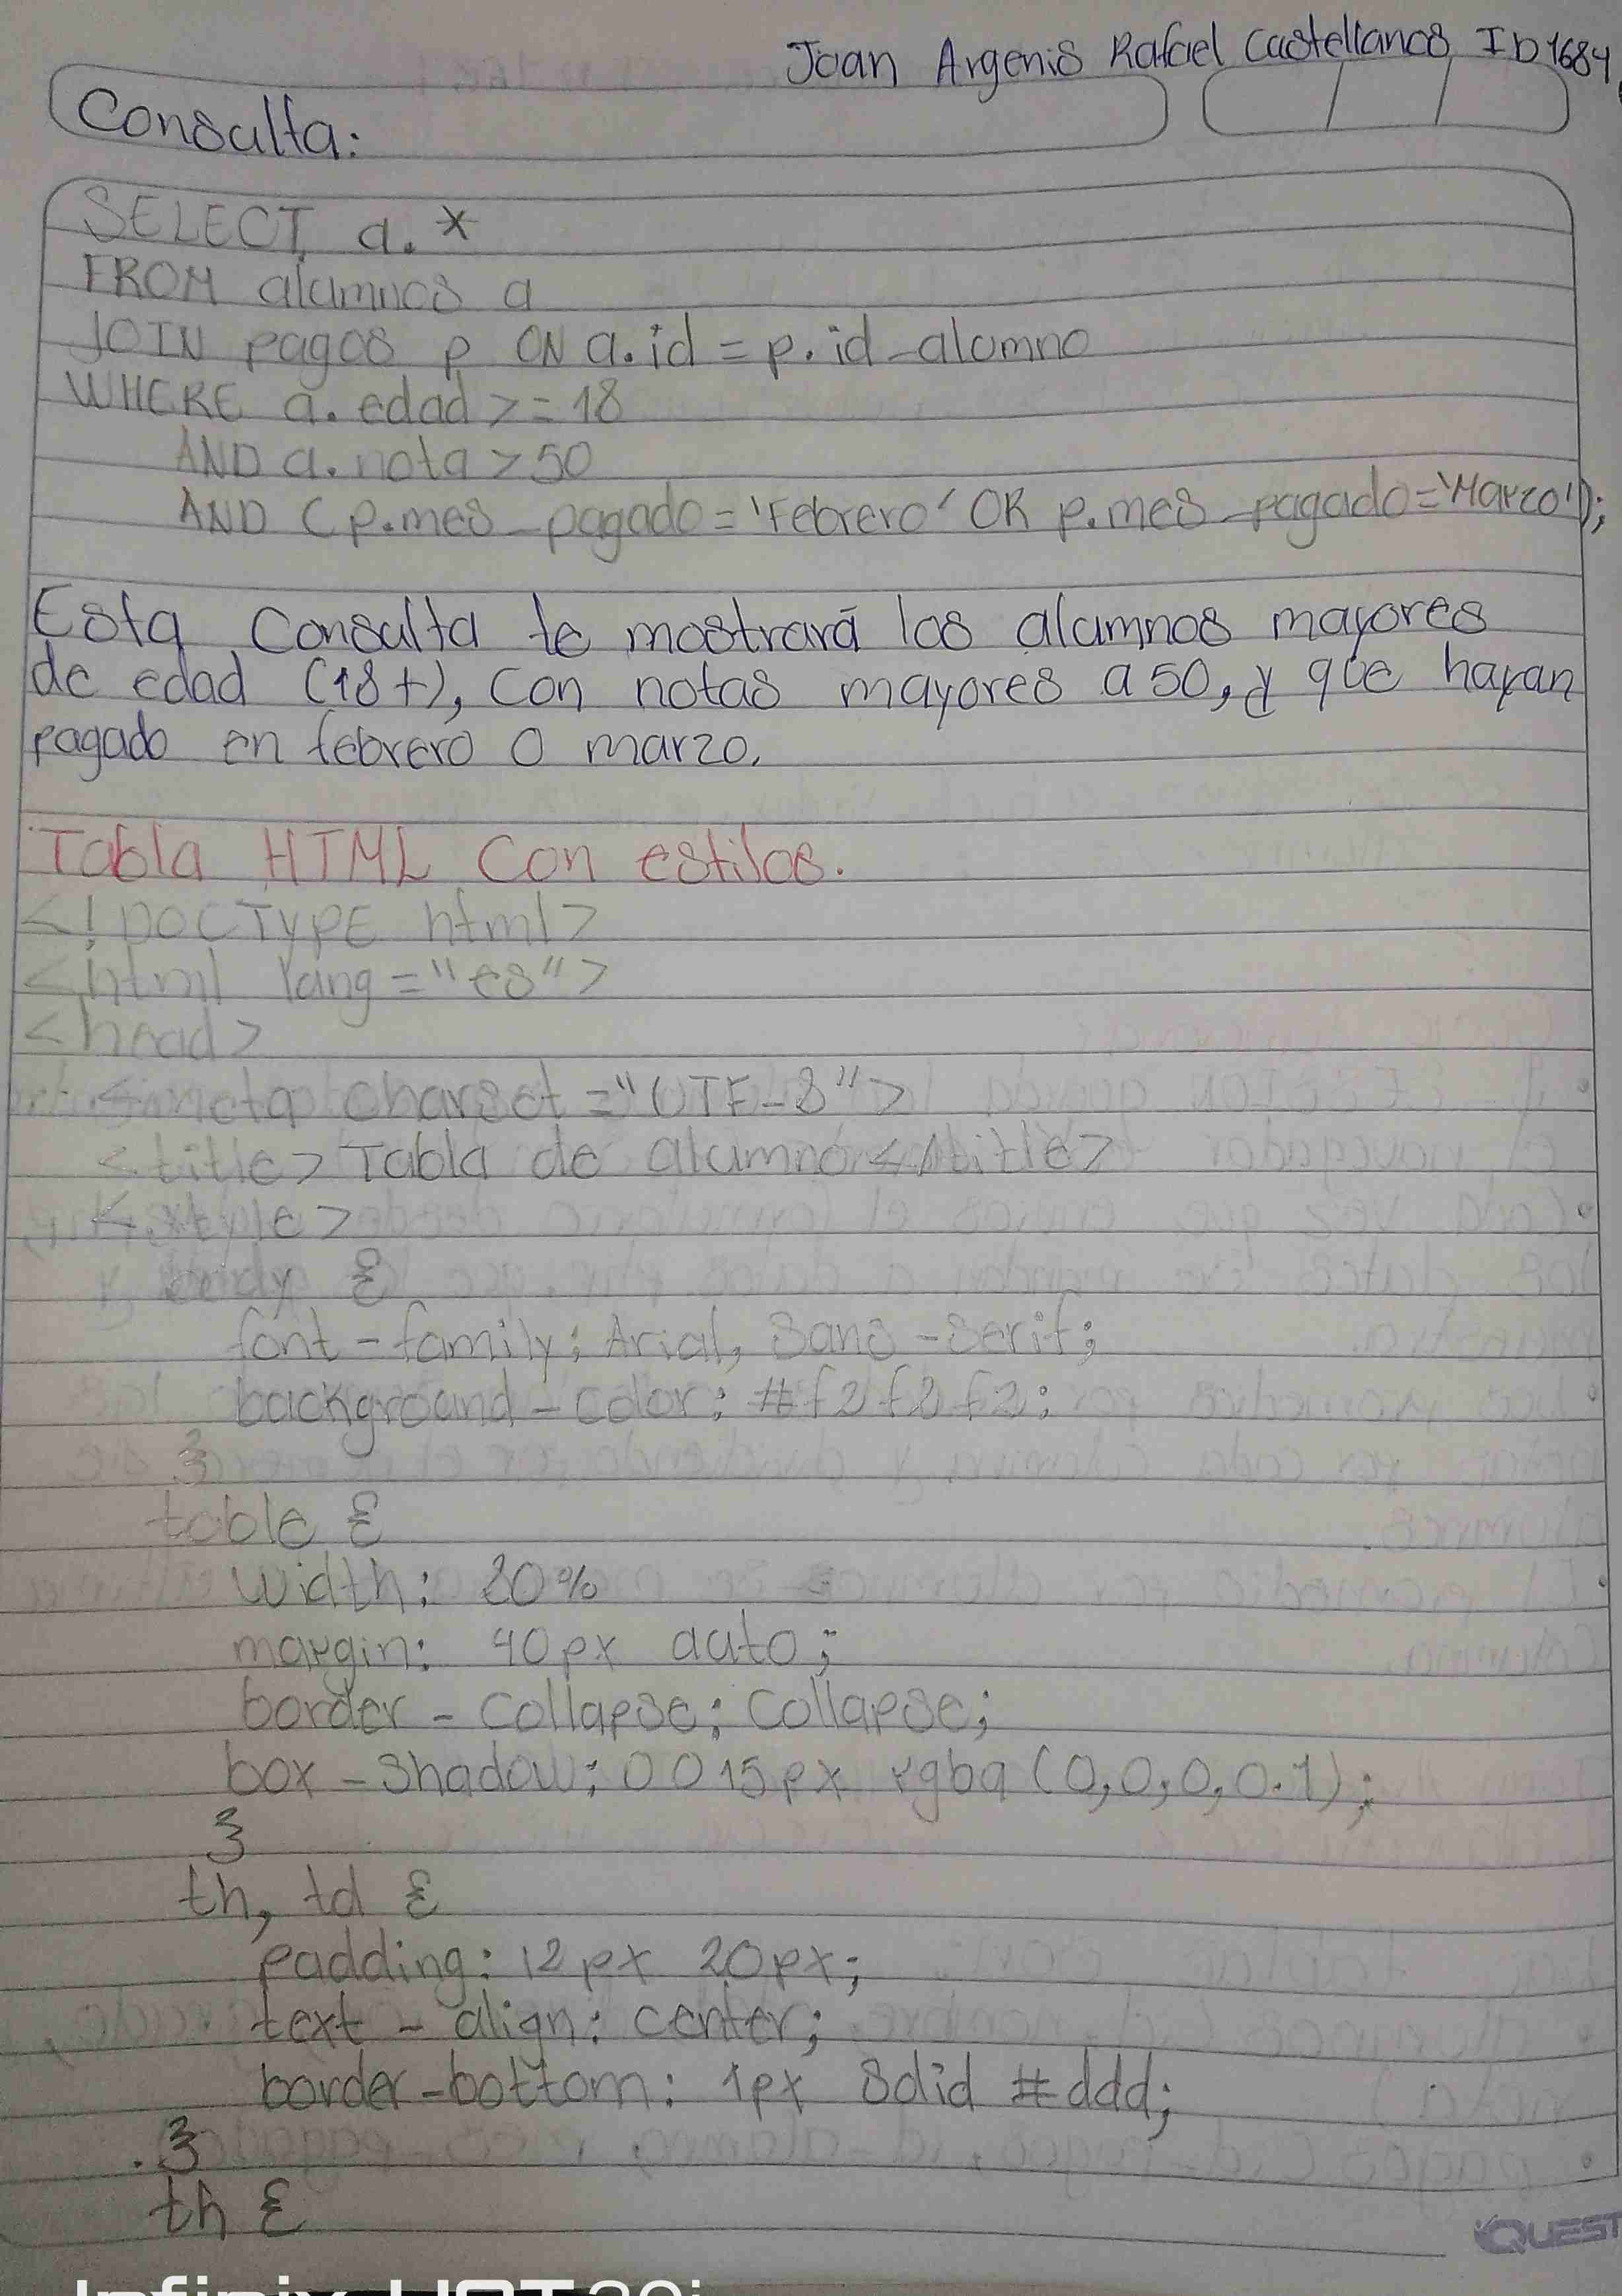 Joan Argenis Rafael Castellanos ID1684
Consulta:
SELECT a.*
FROM alumnos a
JOIN pagos p ON a.id = p.id_alumno
WHERE a.edad >= 18
AND a.nota > 50
AND (p.mes_pagado = 'Febrero' OR p.mes_pagado = 'Marzo');
Esta Consulta te mostrará los alumnos mayores
de edad (18+), Con notas mayores a 50, y que hayan
pagado en febrero o marzo.
Tabla HTML Con estilos.
<!DOCTYPE html>
<html lang="es">
<head>
<meta charset="UTF-8">
<title>Tabla de alumno</title>
<style>
body {
font-family: Arial, Sans-Serif;
background-color: #f2f2f2;
}
table {
width: 80%
margin: 40px auto;
border-collapse: Collapse;
box-shadow: 0 0 15px rgba(0,0,0,0.1);
}
th, td {
padding: 12px 20px;
text-align: center;
border-bottom: 1px Solid #ddd;
}
th {
QUEST